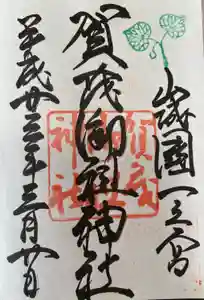 山城國一之宮
賀茂御祖神社
平成廿三年三月廿日
賀茂御祖神社